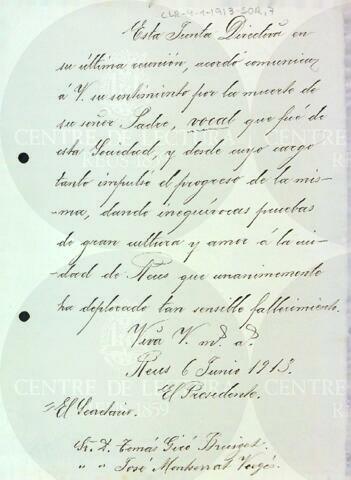 CLR-4-1-1913-SOR,7
Esta Junta Directiva en
su última reunión, acordó comunicar
á V. su sentimiento por la muerte de
su señor Padre, vocal que fué de
esta Sociedad, y desde cuyo cargo
tanto impulsó el progreso de la mis-
ma, dando inequívocas pruebas
de gran cultura y amor á la ciu-
dad de Reus que unanimemente
ha deplorado tan sensible fallecimiento.
Viva V. m.s a.s
Reus 6 Junio 1913.
El Presidente.
El Secretario.
Sr. D. Tomás
" " José Montserrat Vergés.
CENTRE DE LECTURA
CENTRE DE LECTURA
1859